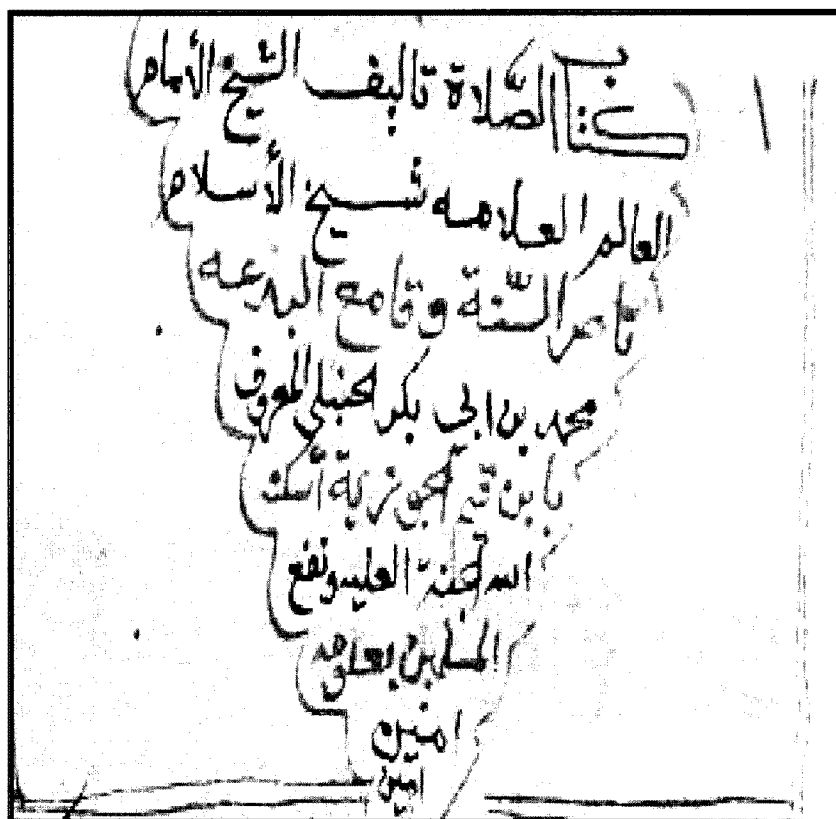 كتاب الصّلاة تاليف الشيخ الأمام
العالم العلامه شيخ الأسلام
ناصر السّنة وقامع البدعه
محمد بن ابي بكر الحنبلي المعروف
بابن قيم الجوزية أسكنه
الله الجنة العليه ونفع
المسلمين بعلومه
امين
امين